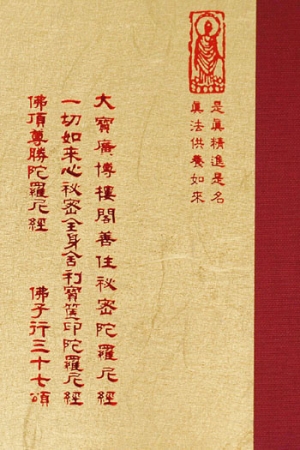 是眞精進是名
眞法供養如來
大寶廣博樓閣善住祕密陀羅尼經
一切如来心祕密全身舍利寶篋印陀羅尼經
佛頂尊勝陀羅尼經　佛子行三十七頌